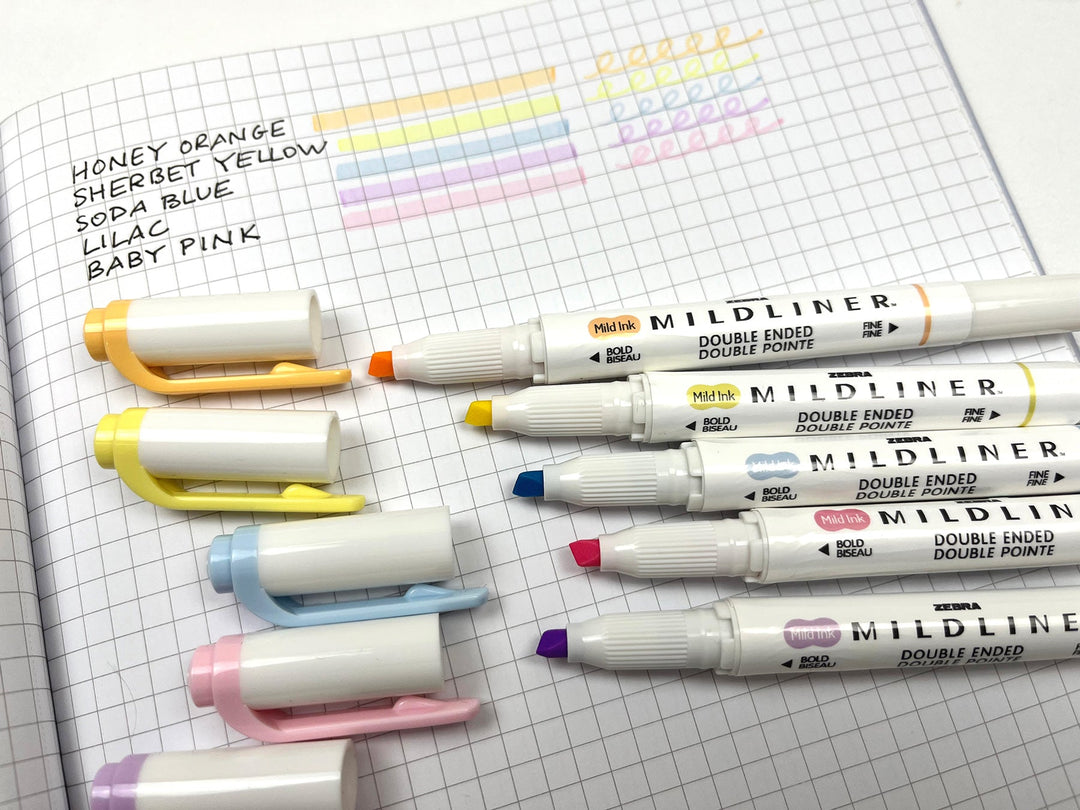 HONEY ORANGE
SHERBET YELLOW
SODA BLUE
LILAC
BABY PINK
ZEBRA
Mild Ink MILDLINER™
DOUBLE ENDED
DOUBLE POINTE
BOLD
BISEAU
FINE
FINE
ZEBRA
Mild Ink MILDLINER™
DOUBLE ENDED
DOUBLE POINTE
BOLD
BISEAU
FINE
FINE
ZEBRA
Mild Ink MILDLINER
DOUBLE ENDED
DOUBLE POINTE
BOLD
BISEAU
FINE
FINE
Mild Ink MILDLIN
DOUBLE ENDED
DOUBLE POINTE
BOLD
BISEAU
ZEBRA
Mild Ink MILDLINE
DOUBLE ENDED
DOUBLE POINTE
BOLD
BISEAU